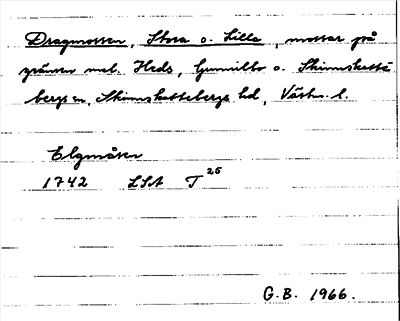 Dragmossen, Stora o. Lilla, mossar på
gränsen mel. Heds, Gunnilbo o. Skinnskatte
bergs sn, Skinnskattebergs hd, Västm. l.
Elgmåsen
1742 LSA T 25
G.B. 1966.